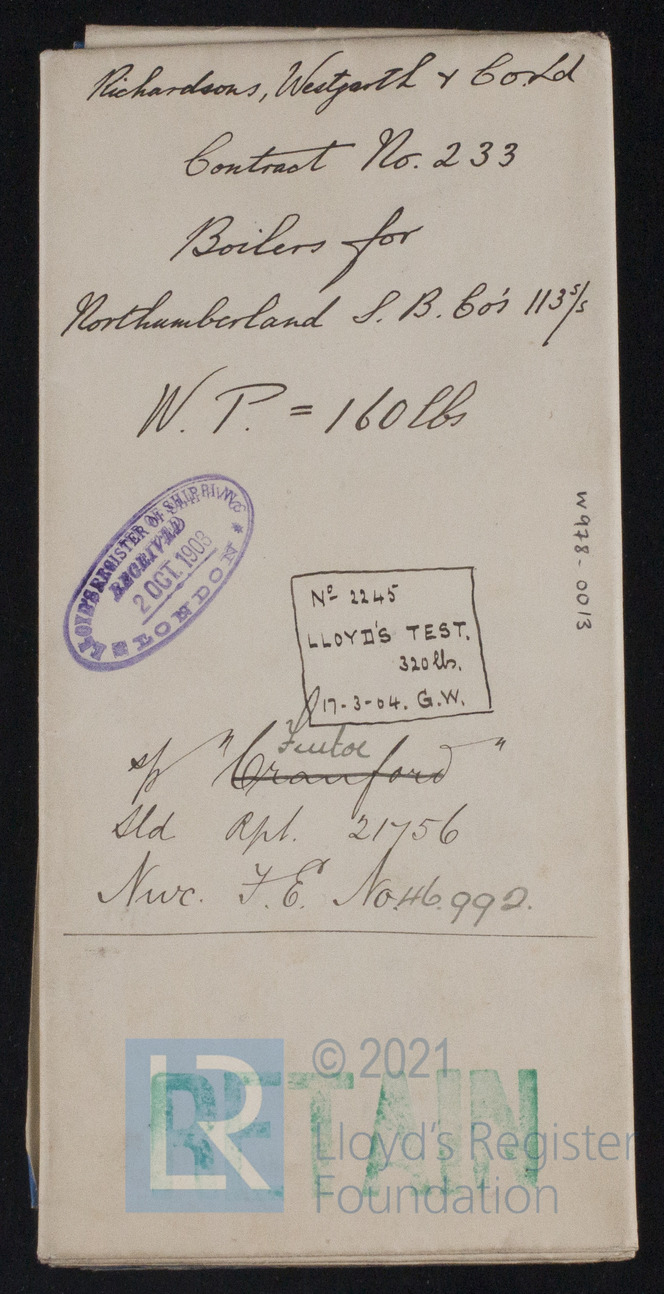 Richardsons, Westgarth & Co. Ld
Contract No. 233
Boilers for
Northumberland S. B. Co's 113 s/s
W. P. = 160 lbs
LLOYD'S REGISTER OF SHIPPING
RECEIVED
2 OCT. 1903
LONDON
W978-0013
No 2245
LLOYD'S TEST.
320 lbs.
17-3-04. G.W.
"Cranford"
Sld Rpt. 21756
Nwc. F.E. No 46.992.
RETAIN
LR
© 2021
Lloyd's Register
Foundation